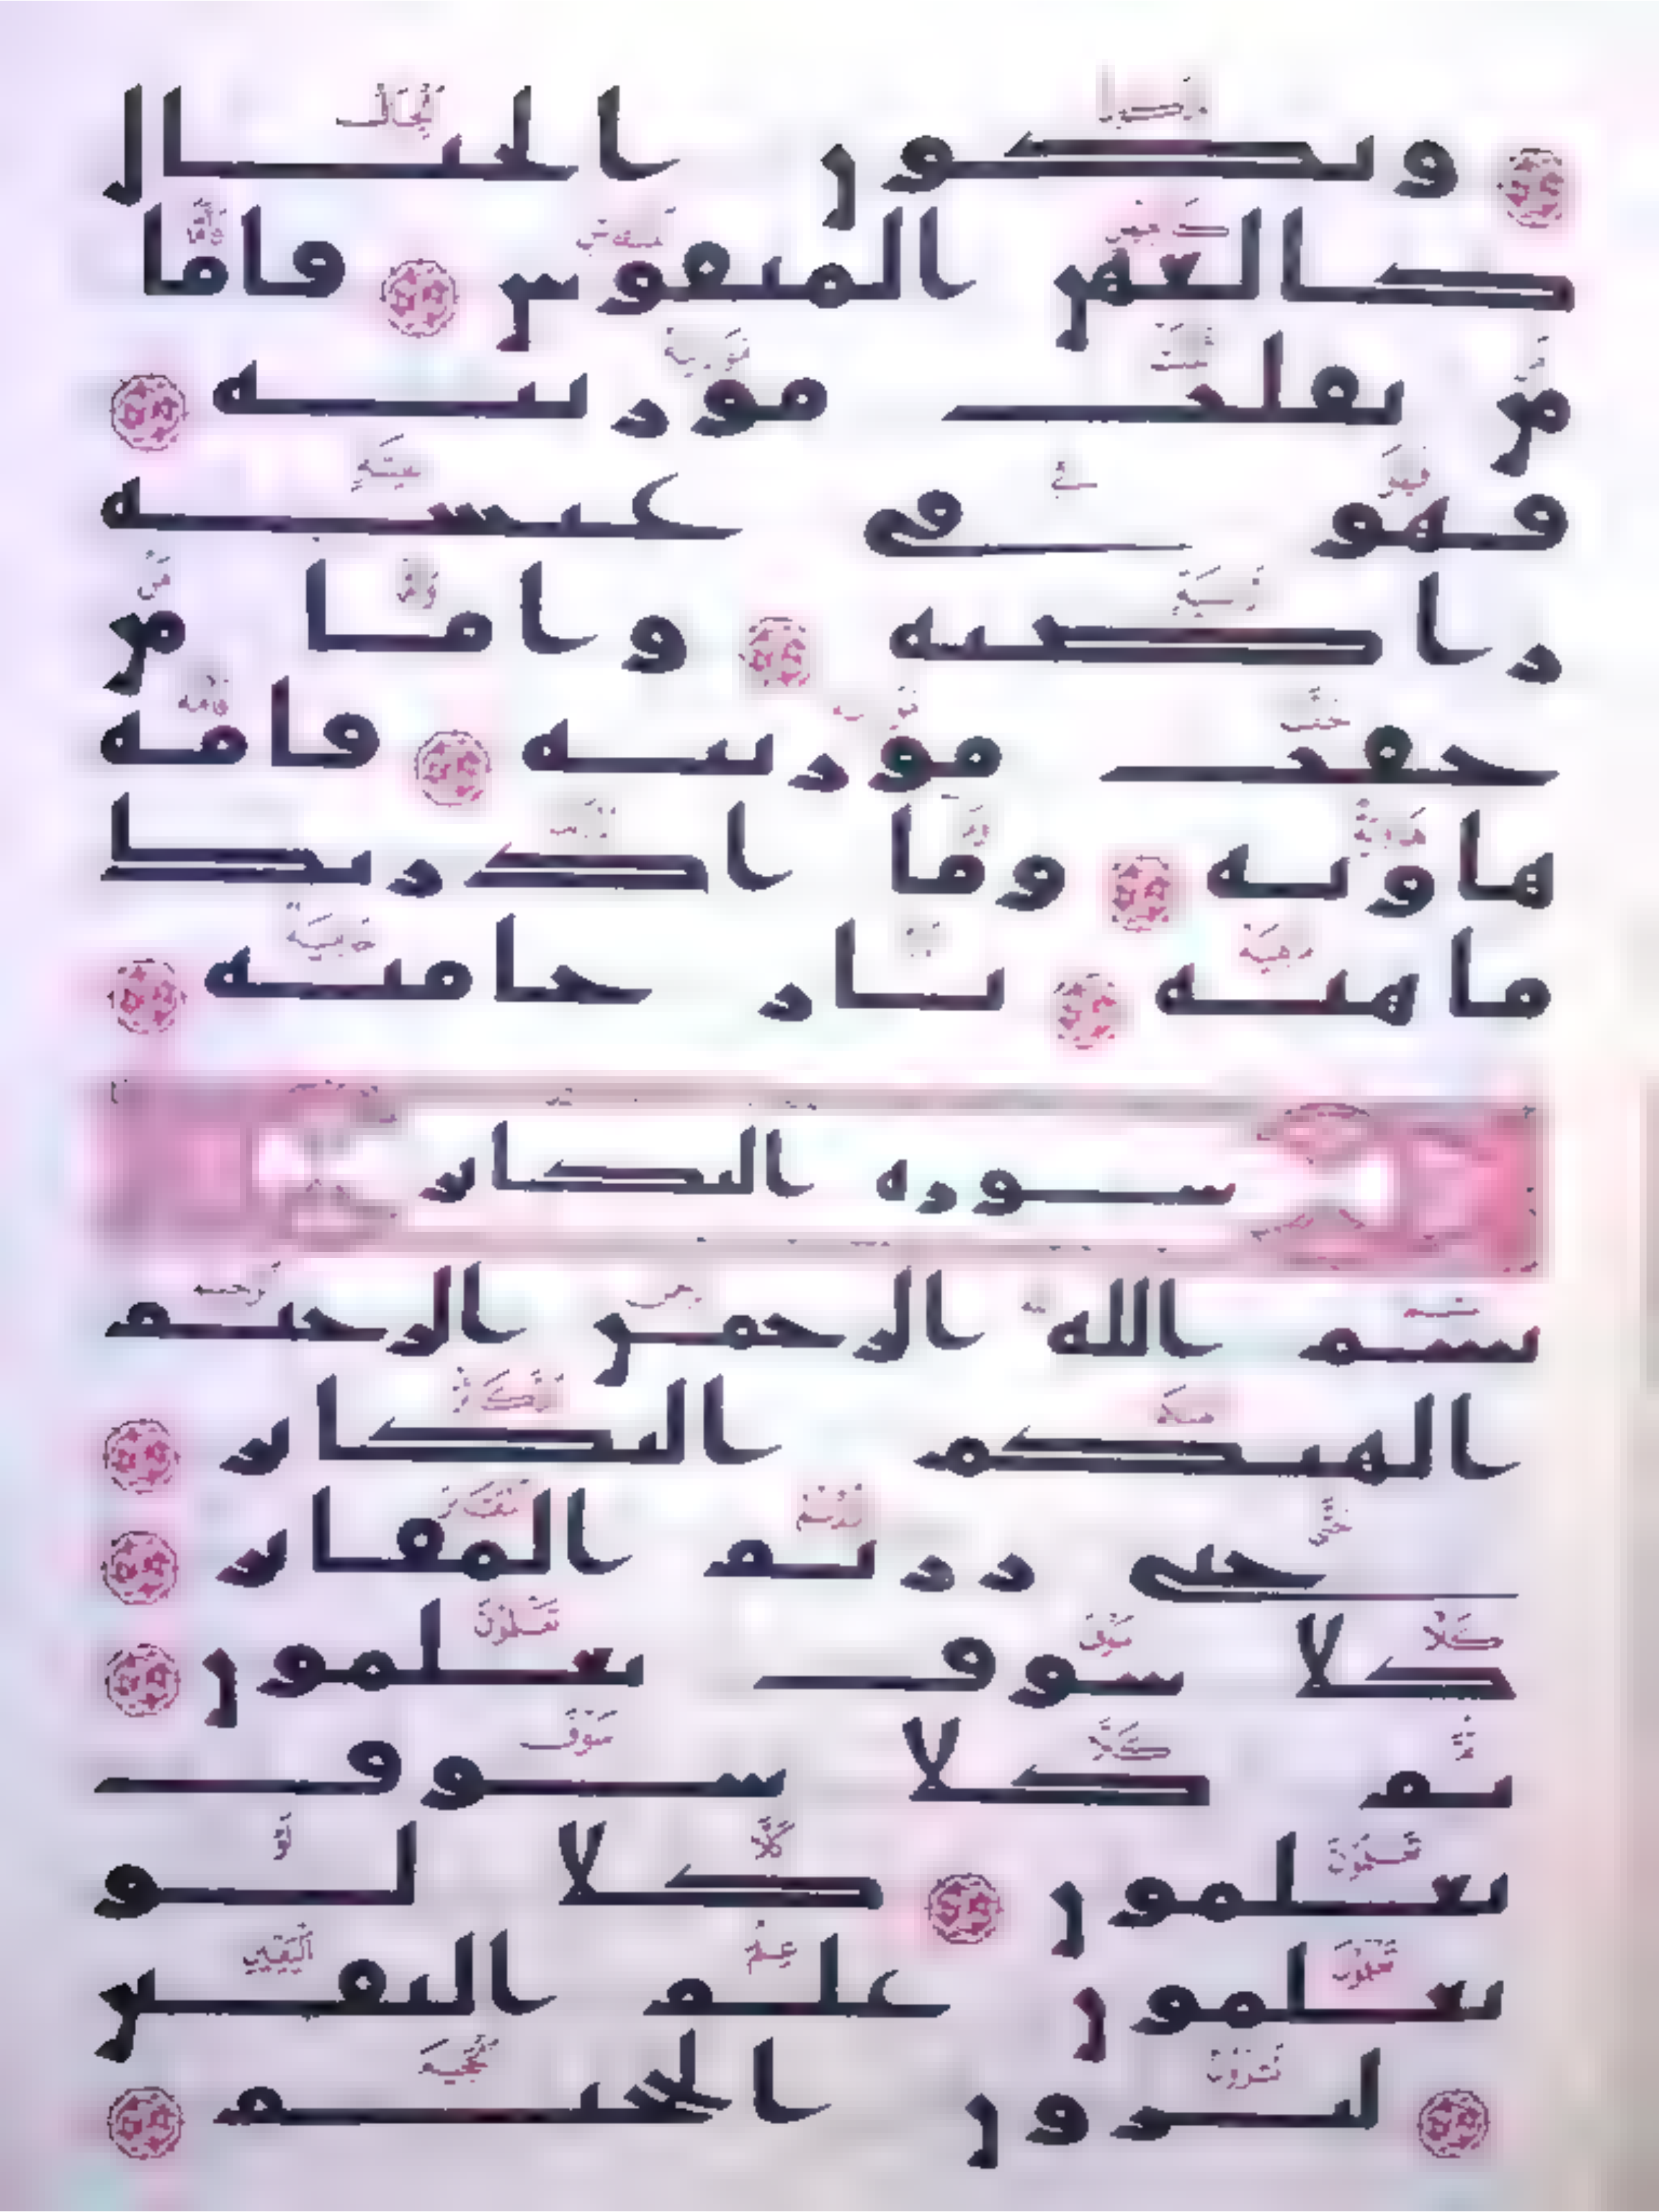 وتكون الجبال
كالعهن المنفوش فاما
من ثقلت موزينه
فهو في عيشه
راضيه واما من
خفت موزينه فامه
هاويه وما ادريك
ماهيه نار حاميه
سوره التكاثر
بسم الله الرحمن الرحيم
الهيكم التكاثر
حتى زرتم المقابر
كلا سوف تعلمون
ثم كلا سوف
تعلمون كلا لو
تعلمون علم اليقين
لترون الجحيم